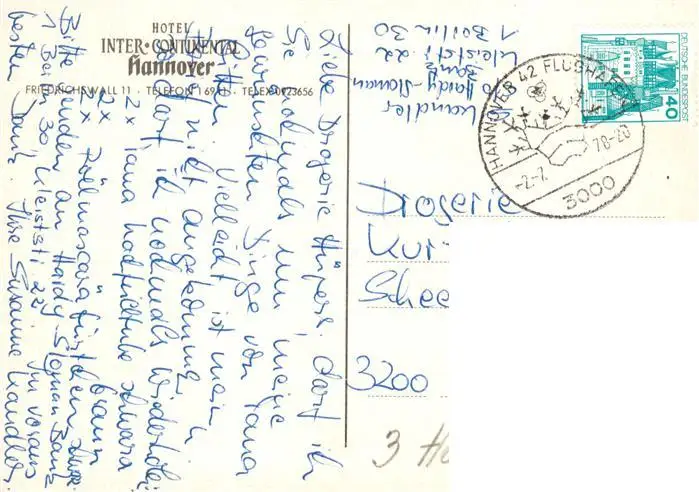 HOTEL
INTER·CONTINENTAL
Hannover
FRIEDRICHSWALL 11 · TELEFON 1 69 11 · TELEX 0923656
Liebe Drogerie Hüpers. Darf ich
Sie nochmals um meine
Lana
bitten. Vielleicht ist mein
nicht angekommen
darf ich nochmals wiederholen
2x Lana
2x braun
2x
Bitte senden an Hardy Sloman Banz
1 Berlin 30 Kleiststr. 22
im voraus
besten Dank. Ihre Susanne Kandler
Kandler
c/o Hardy-Sloman
Banz
Kleiststr. 22
1 Berlin 30
HANNOVER 42 FLUGHAFEN
-2.-7.78-20
3000
DEUTSCHE BUNDESPOST
40
Drogerie
Kur-
Schee
3200
3 He